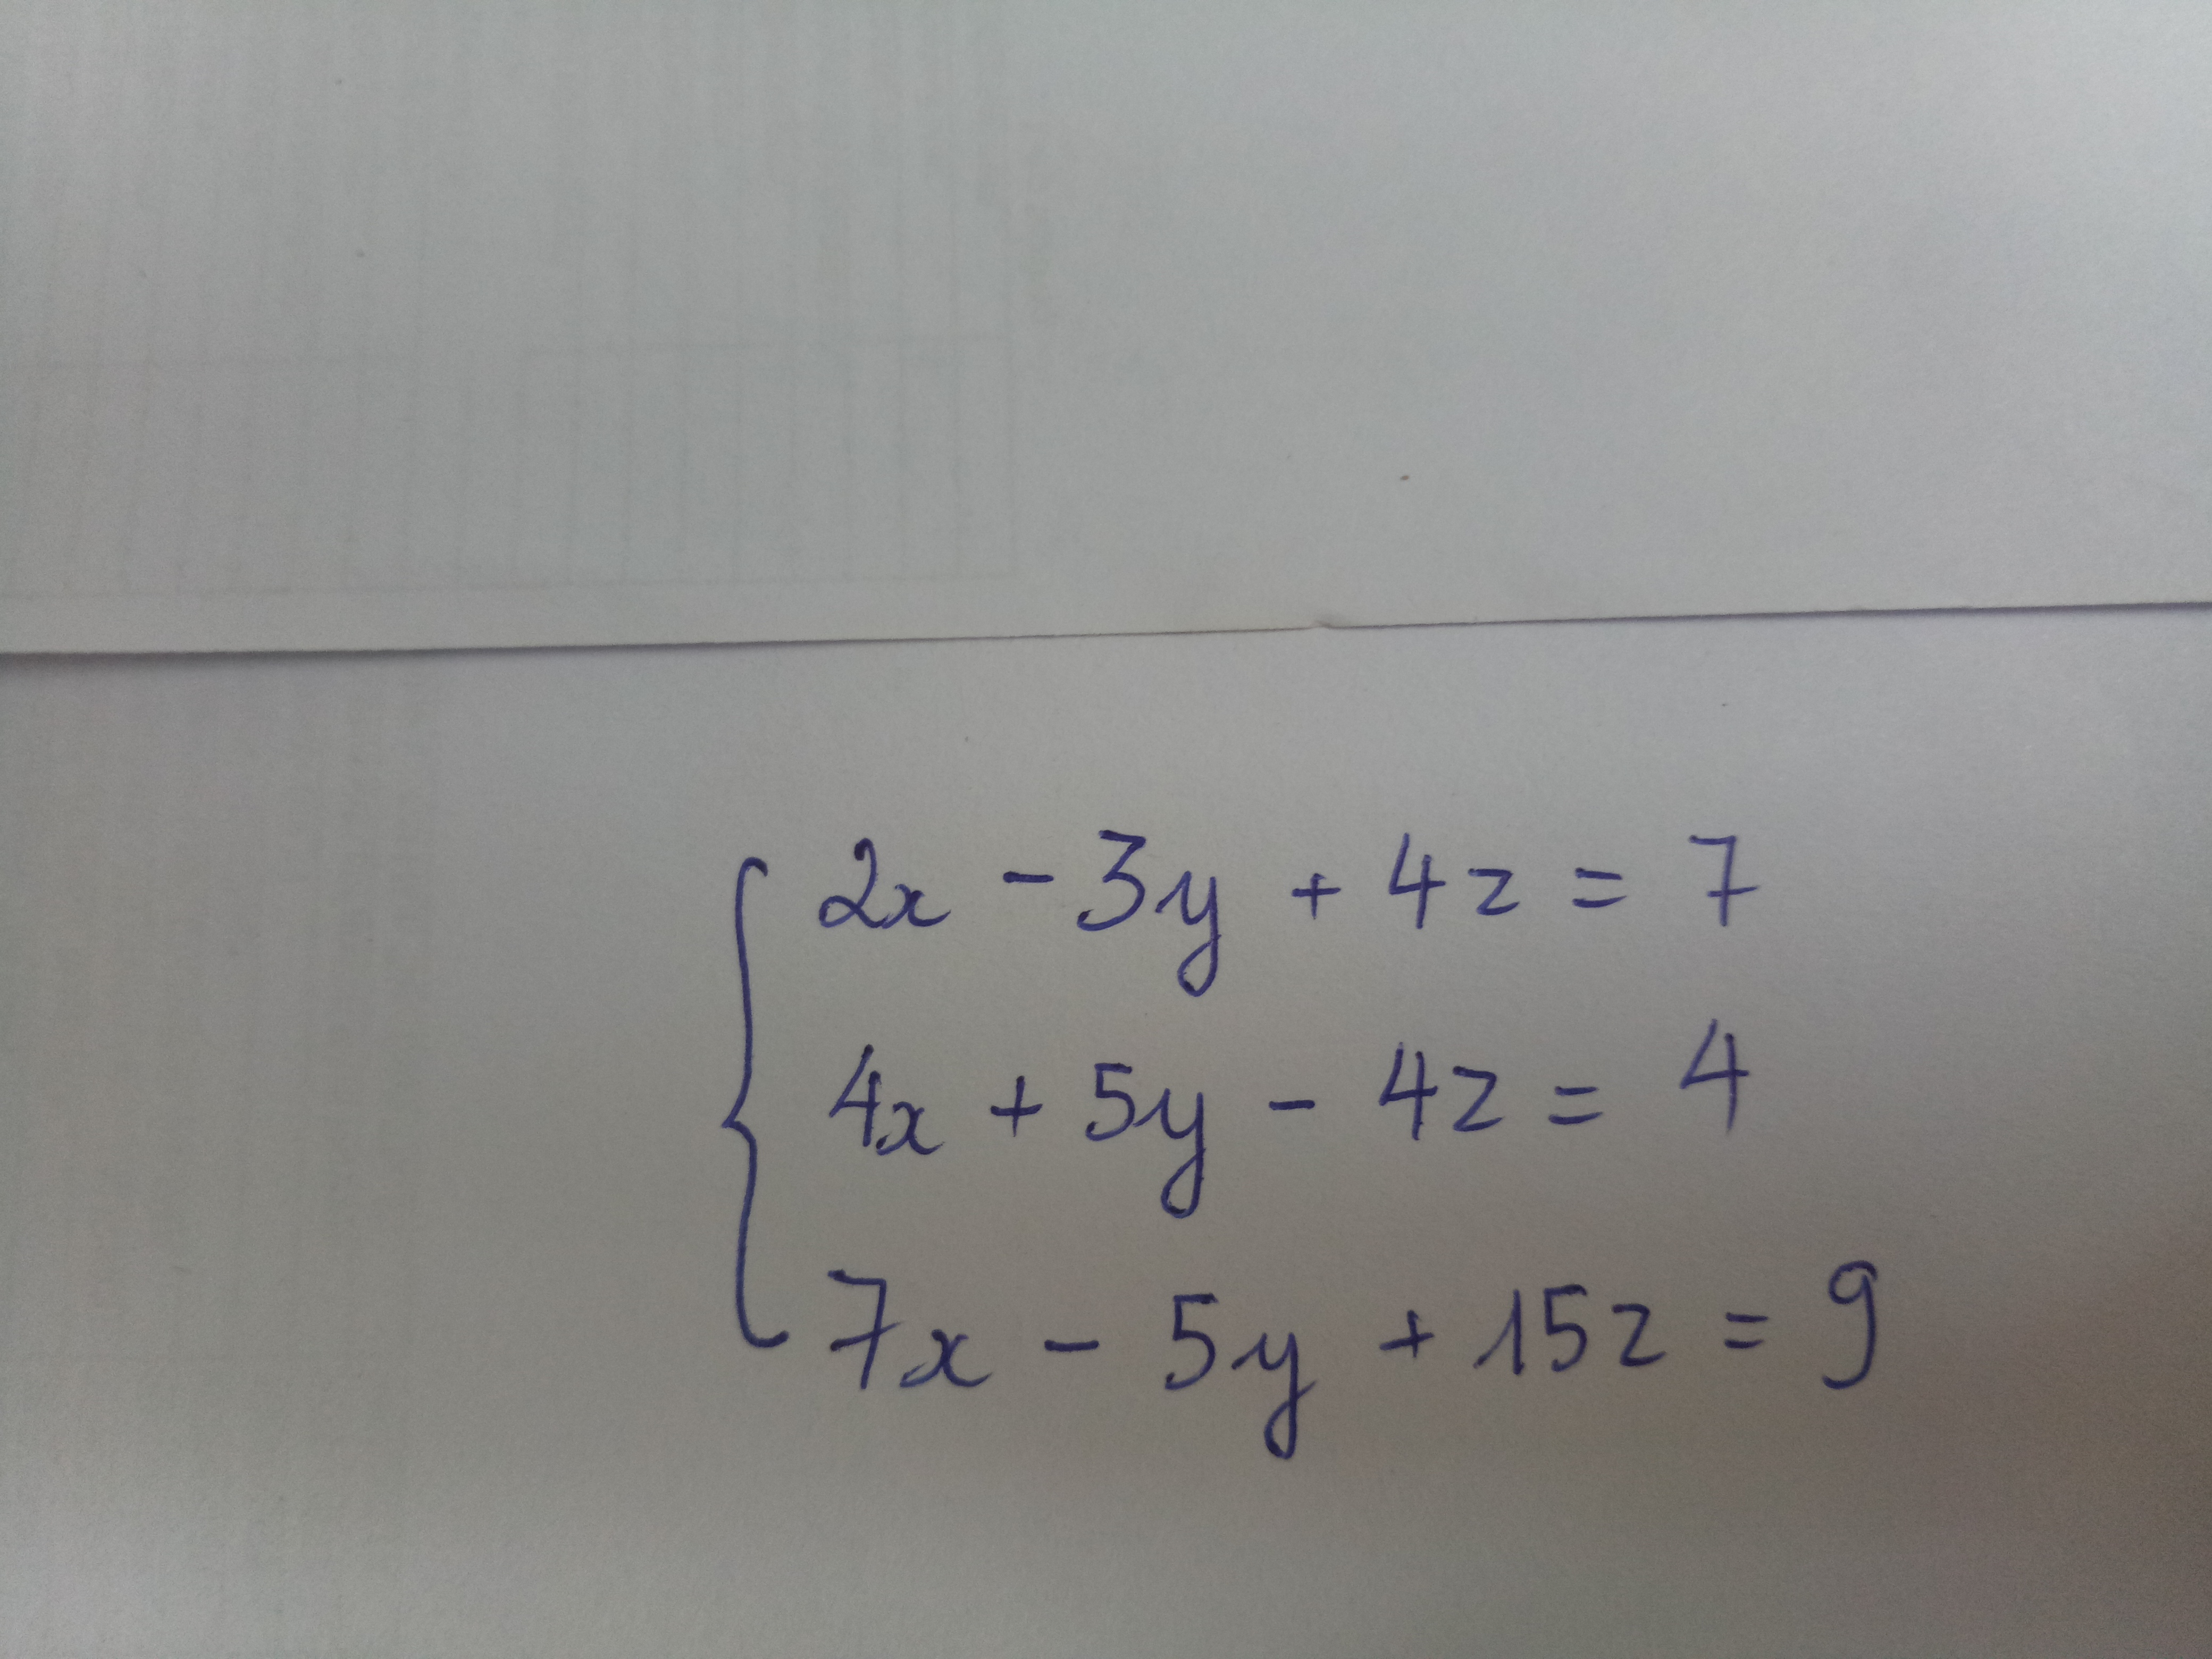 2x - 3y + 4z = 7
4x + 5y - 4z = 4
7x - 5y + 15z = 9